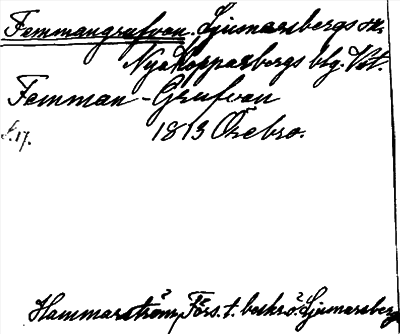 Femmangrufvan. Ljusnarsbergs sn.
Nya Kopparbergs blg. Vstl.
Femman-Grufvan
S. 17. 1813 Örebro.
Hammarström, Förs. t. beskr. ö. Ljusnarsberg